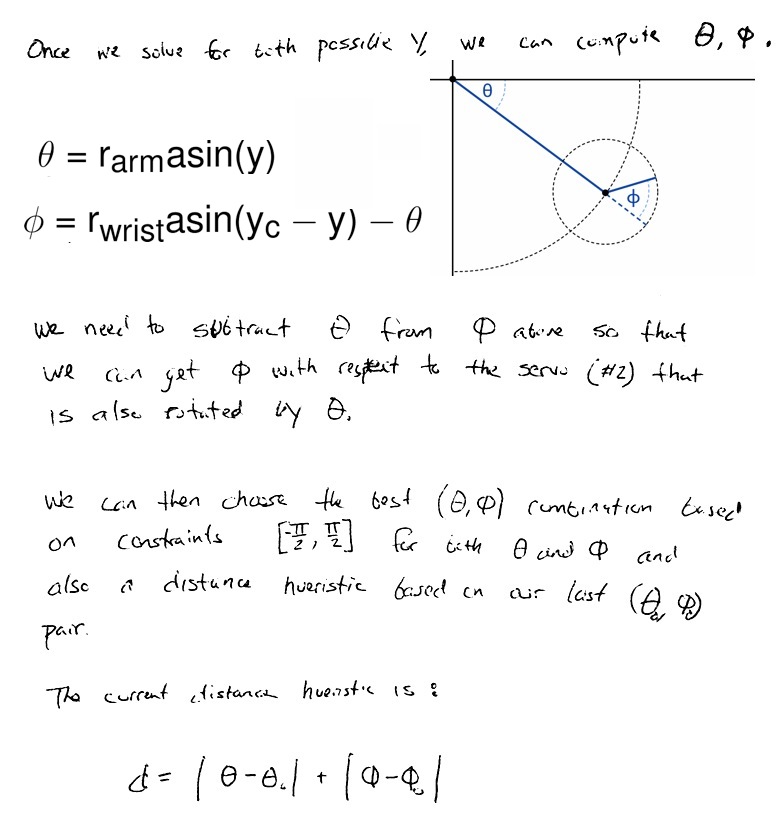 Once we solve for both possible y, we can compute θ, φ.
θ
θ = r_arm asin(y)
φ
φ = r_wrist asin(y_c − y) − θ
We need to subtract θ from φ above so that
we can get φ with respect to the servo (#2) that
is also rotated by θ.
We can then choose the best (θ,φ) combination based
on constraints [-π/2, π/2] for both θ and φ and
also a distance hueristic based on our last (θ₀, φ₀)
pair.
The current distance hueristic is :
d = | θ-θ₀| + |φ-φ₀|